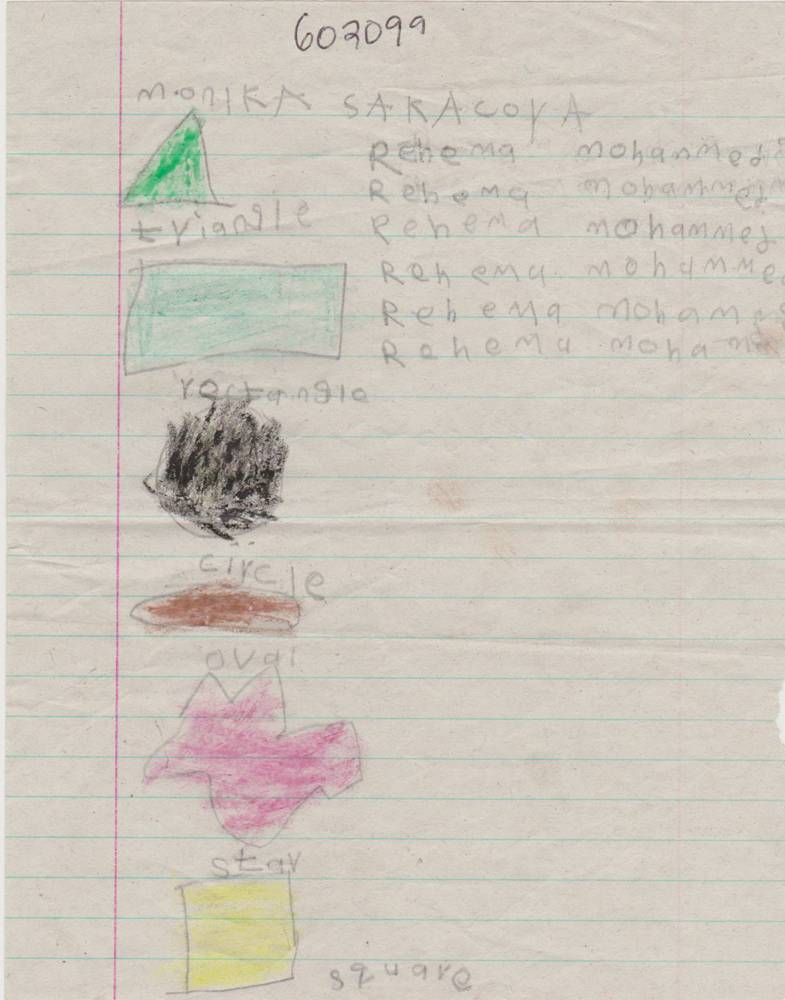 602099
MONIKA SAKACOYA
Rehema mohammed
Rehema mohammed
triangle
Rehema mohammed
Rehema mohamme
Rehema moham
Rehema moha
rectangle
circle
oval
star
square